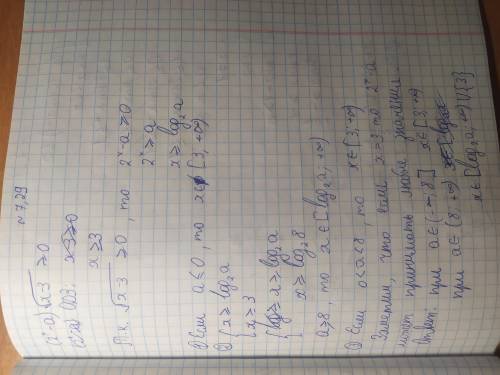 ~ 7,29
(2ˣ-a)√x-3 ≥ 0
x ≥ 3
Т.к. √x-3 ≥ 0, то 2ˣ-a ≥ 0
2ˣ ≥ a
x ≥ log₂a
1) Если a ≤ 0, то x∈ [3; +∞)
2) {x ≥ log₂a
{x ≥ 3
{x ≥ log₂a
x ≥ log₂8
a ≥ 8 то x ∈ [log₂a; +∞)
3) Если 0<a<8, то x∈[3; +∞)
Заметим, что если x=3, то 2ˣ-a
может принимать любые значения.
Ответ: при a∈(-∞; 8] x∈[3; +∞)
при a∈(8; +∞)
x∈[log₂a; +∞)∪{3}